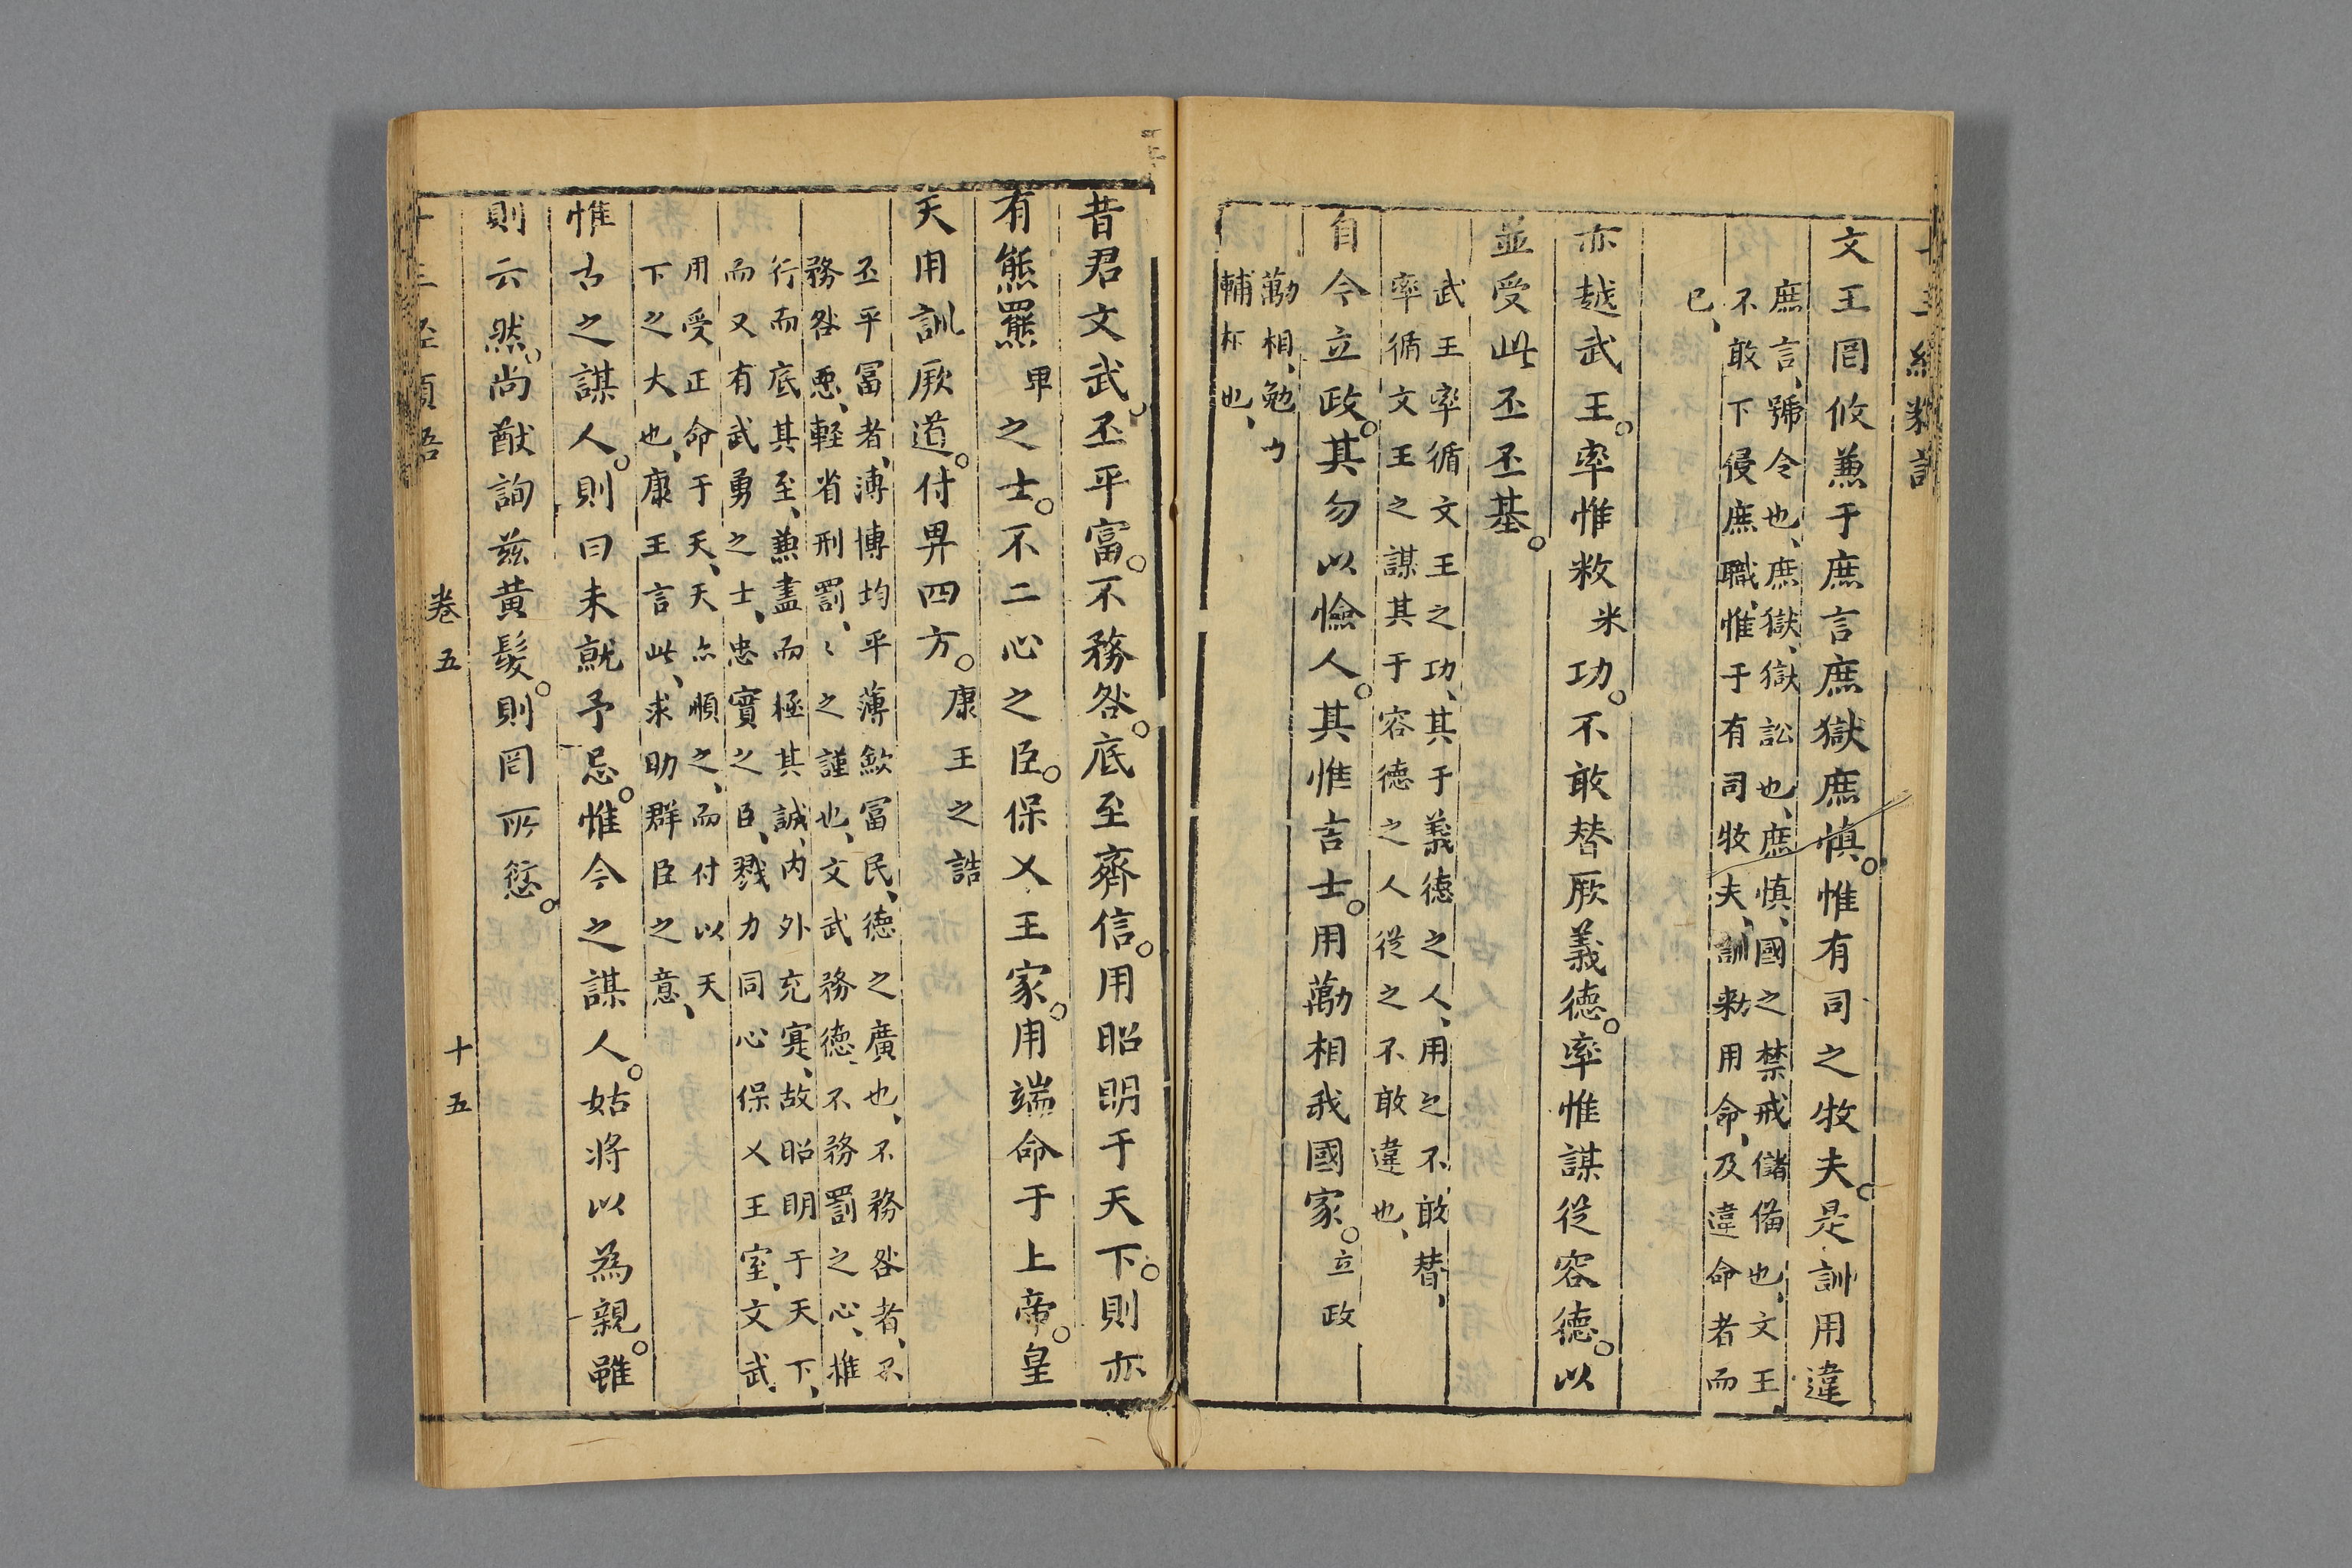 文王罔攸兼于庶言庶獄庶慎。惟有司之牧夫。是訓用違
庶言、號令也、庶獄、獄訟也、庶慎、國之禁戒儲備也、文王、
不敢下侵庶職、惟于有司牧夫、訓勑用命、及違命者而
已、
亦越武王。率惟敉米功。不敢替厥義德。率惟謀從容德。以
並受此丕丕基。
武王率循文王之功、其于義德之人、用之不敢替、
率循文王之謀其于容德之人從之不敢違也、
自今立政。其勿以憸人。其惟吉士。用勱相我國家。立政
勱相、勉力
輔
也、
昔君文武。丕平富。不務咎。底至齊信。用昭明于天下。則亦
有熊羆甲之士。不二心之臣。保乂王家。用端命于上帝。皇
天用訓厥道。付畀四方。康王之誥
丕平富者、溥博均平薄歛富民、德之廣也、不務咎者、不
務咎惡、輕省刑罰、〻之謹也、文武務德、不務罰之心、推
行而底其至、兼盡而極其誠、内外充寔、故昭明于天下、
而又有武勇之士、忠實之臣、戮力同心保乂王室、文武、
用受正命于天、天亦順之、而付以天
下之大也、康王言此、求助群臣之意、
惟古之謀人。則曰未就予忌。惟今之謀人。姑将以為親。雖
則云然。尚猷詢茲黄髮。則罔所愆。
卷五 十五